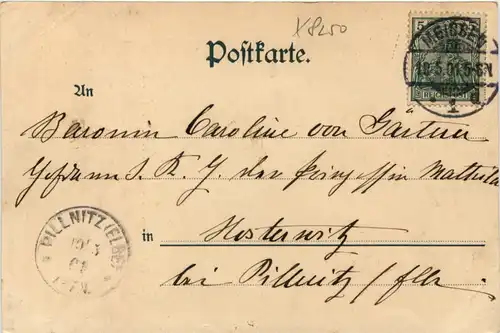 X8250
Postkarte.
5
MEISSEN
19.5.01.5-6N
REICHSPOST
1
An
Baronin Caroline von Gärtner
Hofdame I. K. H. der Prinzessin Mathilde
in Hosterwitz
bei Pillnitz / Elbe
PILLNITZ (ELBE)
19 5
01